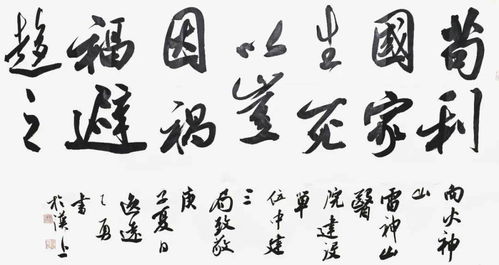 苟利
國家
生死
以豈
因禍
福避
趨之
向火神
山
雷神山
醫
院建設
單
位中建
三
局致敬
庚
子夏日
勇
書
於漢上